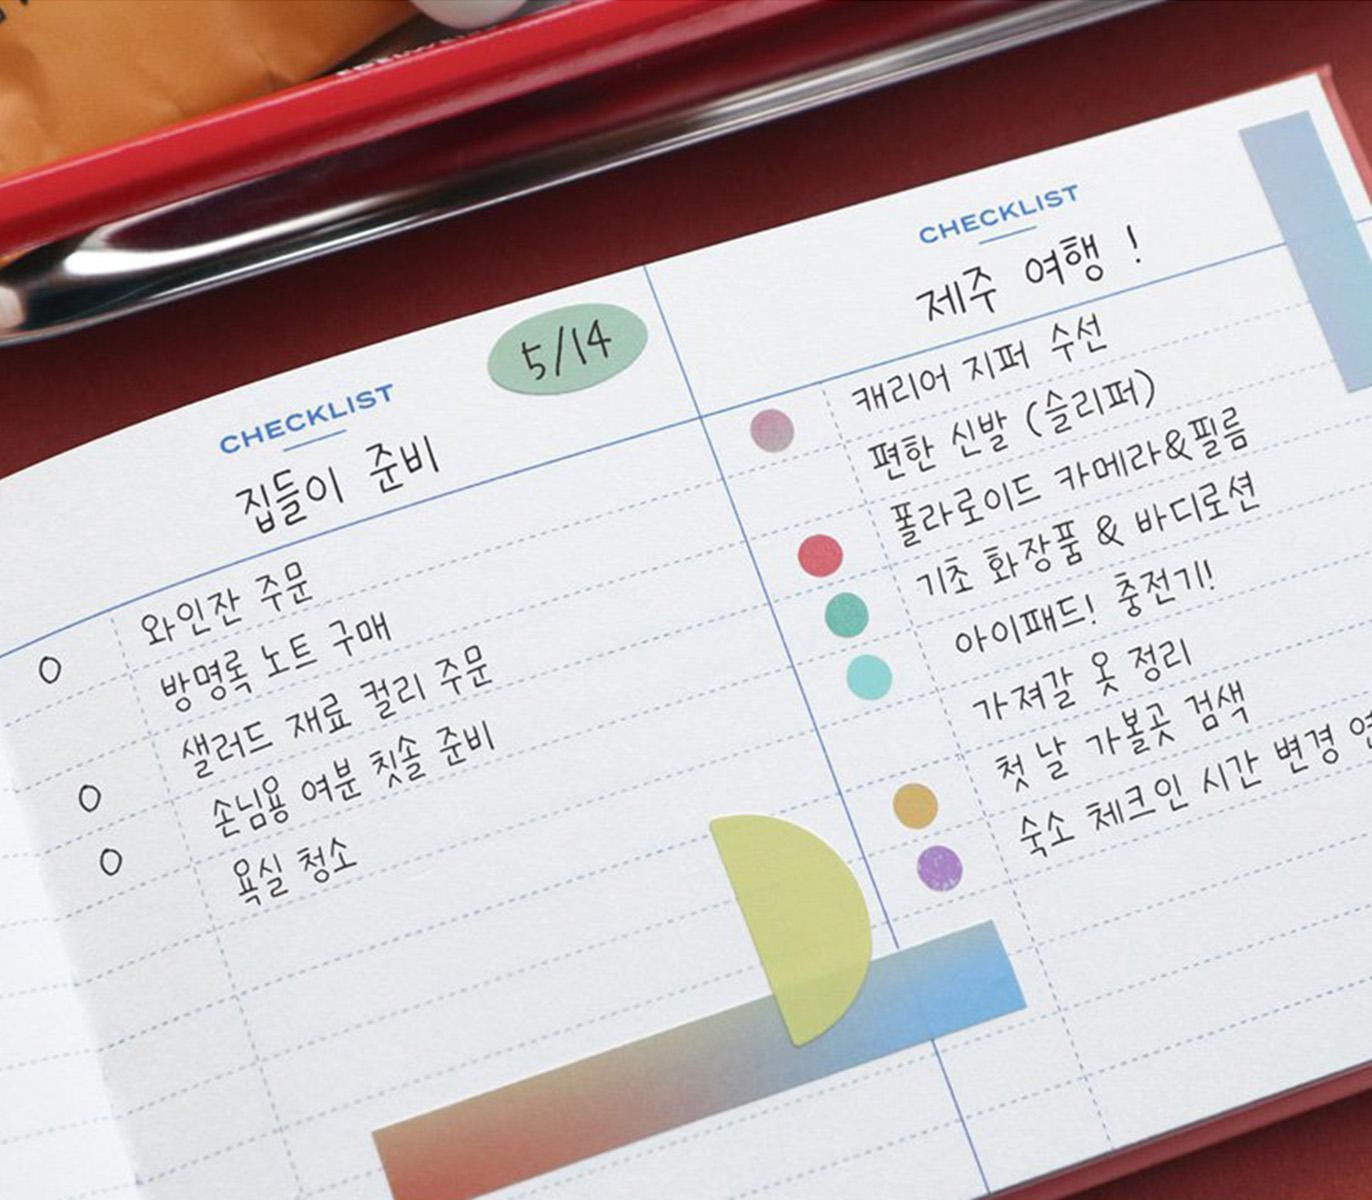 CHECKLIST
5/14
집들이 준비
와인잔 주문
방명록 노트 구매
샐러드 재료 컬리 주문
손님용 여분 칫솔 준비
욕실 청소
CHECKLIST
제주 여행 !
캐리어 지퍼 수선
편한 신발 (슬리퍼)
폴라로이드 카메라&필름
기초 화장품 & 바디로션
아이패드! 충전기!
가져갈 옷 정리
첫 날 가볼곳 검색
숙소 체크인 시간 변경